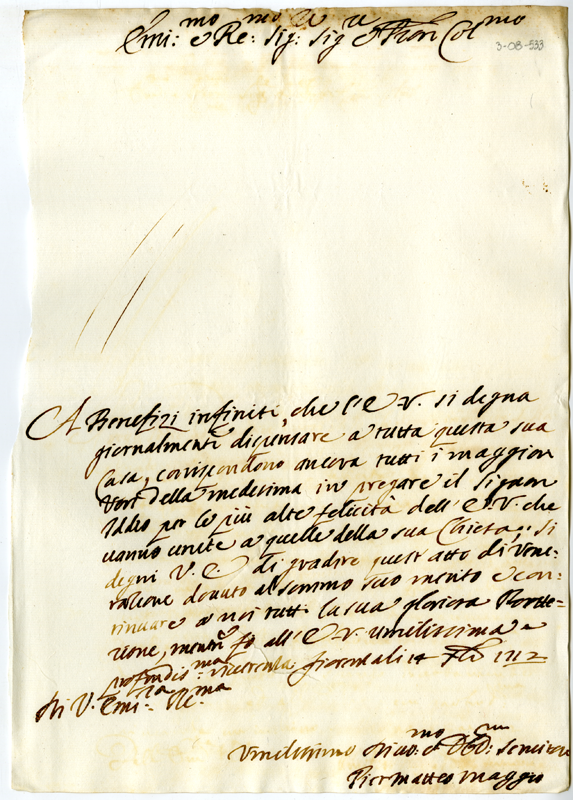 Emi:mo e Re:mo Sig:re Sig:re e Pron Colmo
3-08-533
A Benefizi infiniti, che l'E. V. si degna
giornalmente dispensare a tutta questa sua
Casa, corrispondono ancora tutti i maggiori
Voti della medesima in pregare il Signor
Iddio per le più alte felicità dell'E. V. che
vanno unite a quelle della sua Chiesa; si
degni V. E. di gradire quest'atto di vene-
razione dovuto al sommo suo merito e con-
tinuare a noi tutti la sua gloriosa Prote-
zione, mentre fo all'E. V. umilissima e
profondis:ma riverenza 14 1712
Di V. Emi:za Re:ma
Umilissimo Divo:mo et Obb: Servitore
Pier Matteo Maggio